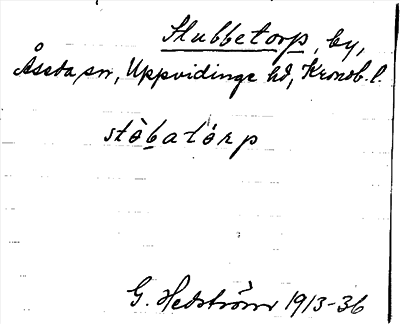 Stubbetorp, by,
Åseda sn, Uppvidinge hd, Kronob. l.
stèbatórp
G. Hedström 1913-36